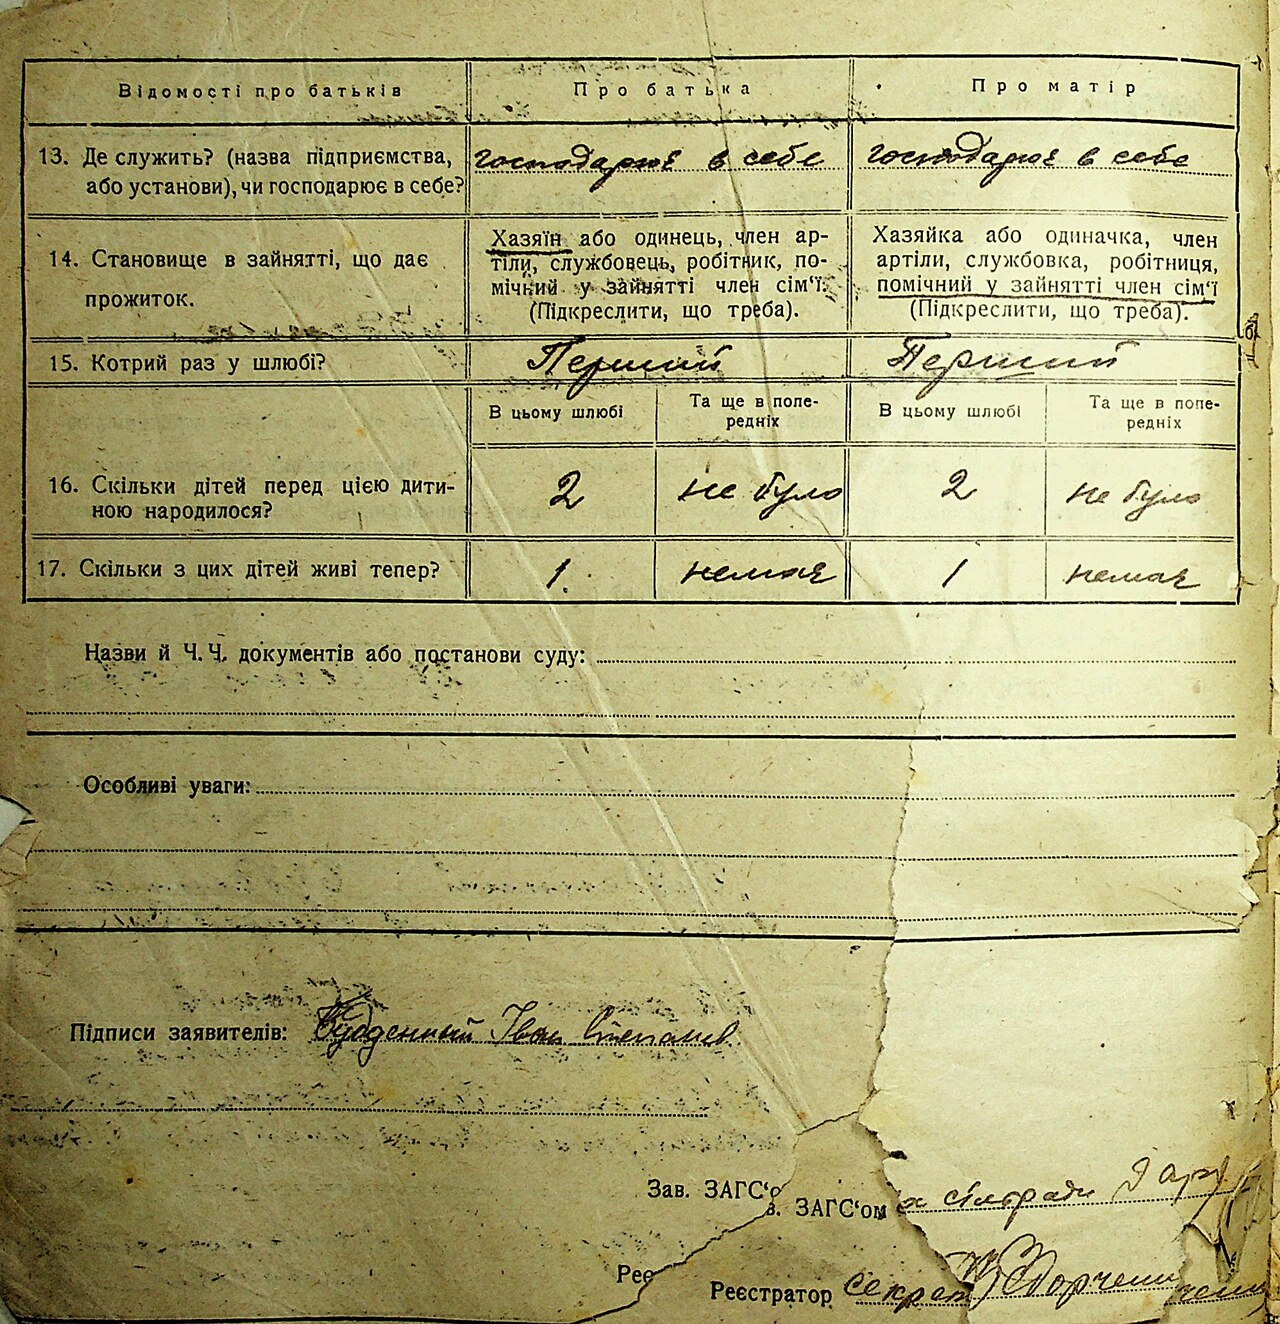 Відомості про батьків Про батька Про матір
13. Де служить? (назва підприємства, або установи), чи господарює в себе? господарює в себе господарює в себе
14. Становище в зайнятті, що дає прожиток.
Хазяїн або одинець, член ар-
тіли, службовець, робітник, по-
мічний у зайнятті член сім‘ї.
(Підкреслити, що треба).
Хазяйка або одиначка, член
артіли, службовка, робітниця,
помічний у зайнятті член сім‘ї
(Підкреслити, що треба).
15. Котрий раз у шлюбі? Перший Перший
В цьому шлюбі Та ще в попе-
редніх
В цьому шлюбі Та ще в попе-
редніх
16. Скільки дітей перед цією дити-
ною народилося? 2 не було 2 не було
17. Скільки з цих дітей живі тепер? 1. немає 1 немає
Назви й Ч. Ч. документів або постанови суду:
Особливі уваги:
Підписи заявителів: Буденний Іван Степанів
Зав. ЗАГС‘о
в. ЗАГС‘ом сільради
Реє
Реєстратор секрет